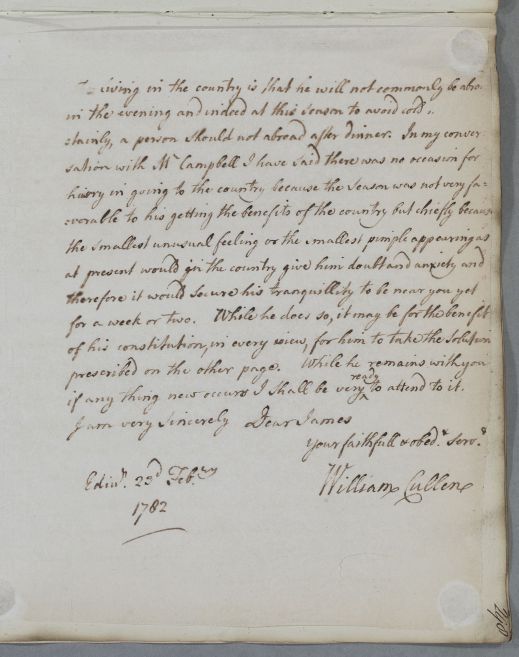 living in the country is that he will not commonly be abro
in the evening and indeed at this season to avoid cold
stainly, a person should not abroad after dinner. In my conver
sation with Mr Campbell I have said there was no occasion for
hurry in going to the country because the season was not very fa-
vorable to his getting the benefits of the country but chiefly because
the smallest unusual feeling or the smallest pimple appearing as
at present would in the country give him doubt and anxiety and
therefore it would secure his tranquillity to be near you yet
for a week or two. While he does so, it may be for the benefit
of his constitution, in every view, for him to take the Solution
prescribed on the other page. While he remains with you
if any thing new occurs I shall be very ready to attend to it.
I am very sincerely Dear James
your faithfull & obedt. servt.
Edinr. 23d Febry
William Cullen
1782